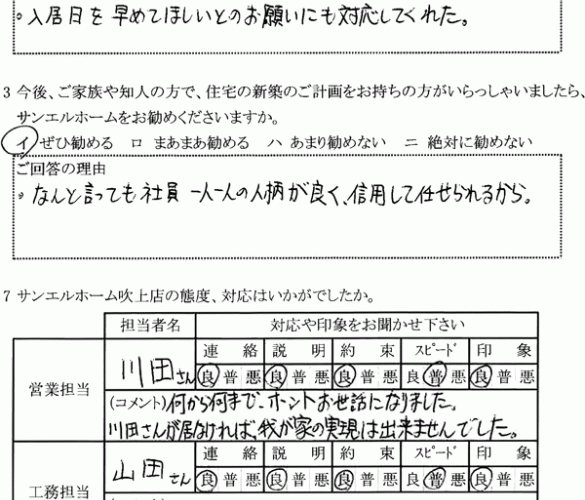 。入居日を早めてほしいとのお願いにも対応してくれた。
3 今後、ご家族や知人の方で、住宅の新築のご計画をお持ちの方がいらっしゃいましたら、
サンエルホームをお勧めくださいますか。
イ ぜひ勧める ロ まあまあ勧める ハ あまり勧めない ニ 絶対に勧めない
ご回答の理由
。なんと言っても社員一人一人の人柄が良く、信用して任せられるから。
7 サンエルホーム吹上店の態度、対応はいかがでしたか。
担当者名 対応や印象をお聞かせ下さい
営業担当 川田さん 連絡 説明 約束 スピード 印象
良 普 悪 良 普 悪 良 普 悪 良 普 悪 良 普 悪
(コメント)何から何まで、ホントお世話になりました。
川田さんが居なければ、我が家の実現は出来ませんでした。
工務担当 山田さん 連絡 説明 約束 スピード 印象
良 普 悪 良 普 悪 良 普 悪 良 普 悪 良 普 悪